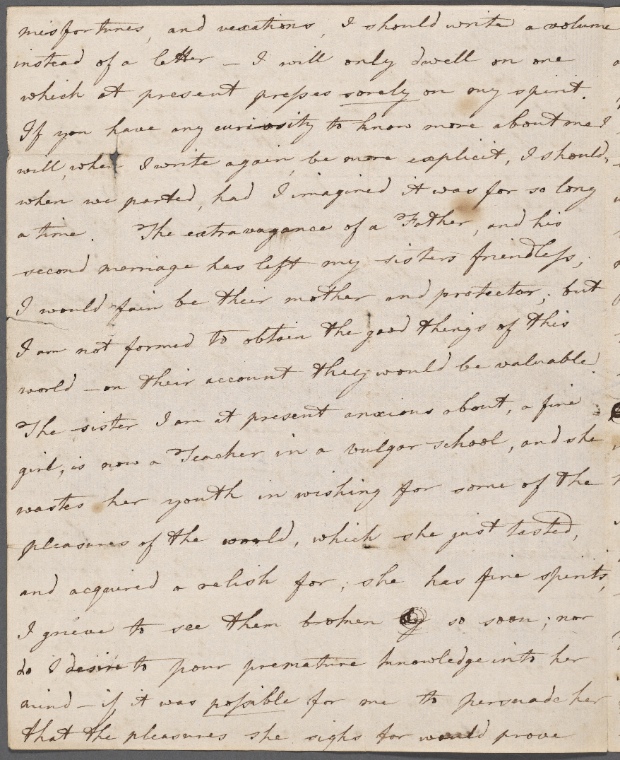 misfortunes, and vexations, I should write a volume
instead of a letter — I will only dwell on one
which at present presses sorely on my spirit.
If you have any curiosity to know more about me I
will, when I write again, be more explicit, I should,
when we parted, had I imagined it was for so long
a time. The extravagance of a Father, and his
second marriage has left my sisters friendless;
I would fain be their mother and protector; but
I am not formed to obtain the good things of this
world — on their account they would be valuable.
The sister I am at present anxious about, a fine
girl, is now a Teacher in a vulgar school, and she
wastes her youth in wishing for some of the
pleasures of the world, which she just tasted,
and acquired a relish for; she has fine spirits,
I grieve to see them broken so soon; nor
do I desire to pour premature knowledge into her
mind — if it was possible for me to persuade her
that the pleasures she sighs for would prove